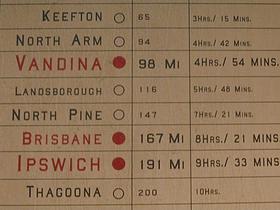 KEEFTON 65 3HRS./ 15 MINS.
NORTH ARM 94 4HRS./ 42 MINS.
VANDINA 98 MI 4HRS./ 54 MINS.
LANDSBOROUGH 116 5HRS./ 48 MINS.
NORTH PINE 147 7HRS./ 21 MINS.
BRISBANE 167 MI 8HRS./ 21 MINS.
IPSWICH 191 MI 9HRS./ 33 MINS.
THAGOONA 200 10HRS.